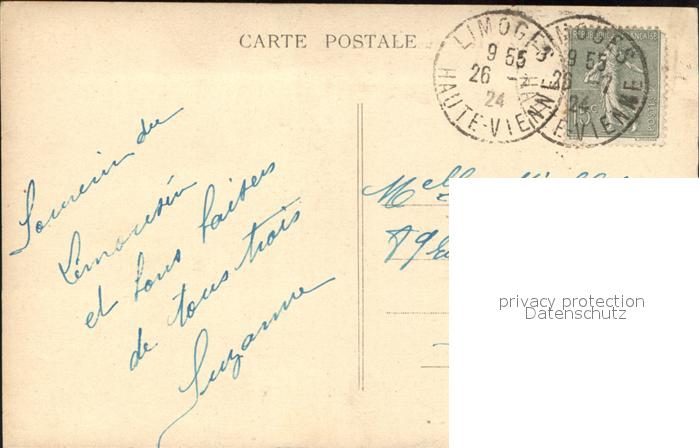 CARTE POSTALE
LIMOGES
9 55
26 - 7
24
HAUTE-VIENNE
LIMOGES
9 55
26 - 7
24
HAUTE-VIENNE
REPUBLIQUE FRANÇAISE
15c
POSTES
Souvenir du
Limousin
et bons baisers
de tous trois
Suzanne
Melle
privacy protection
Datenschutz